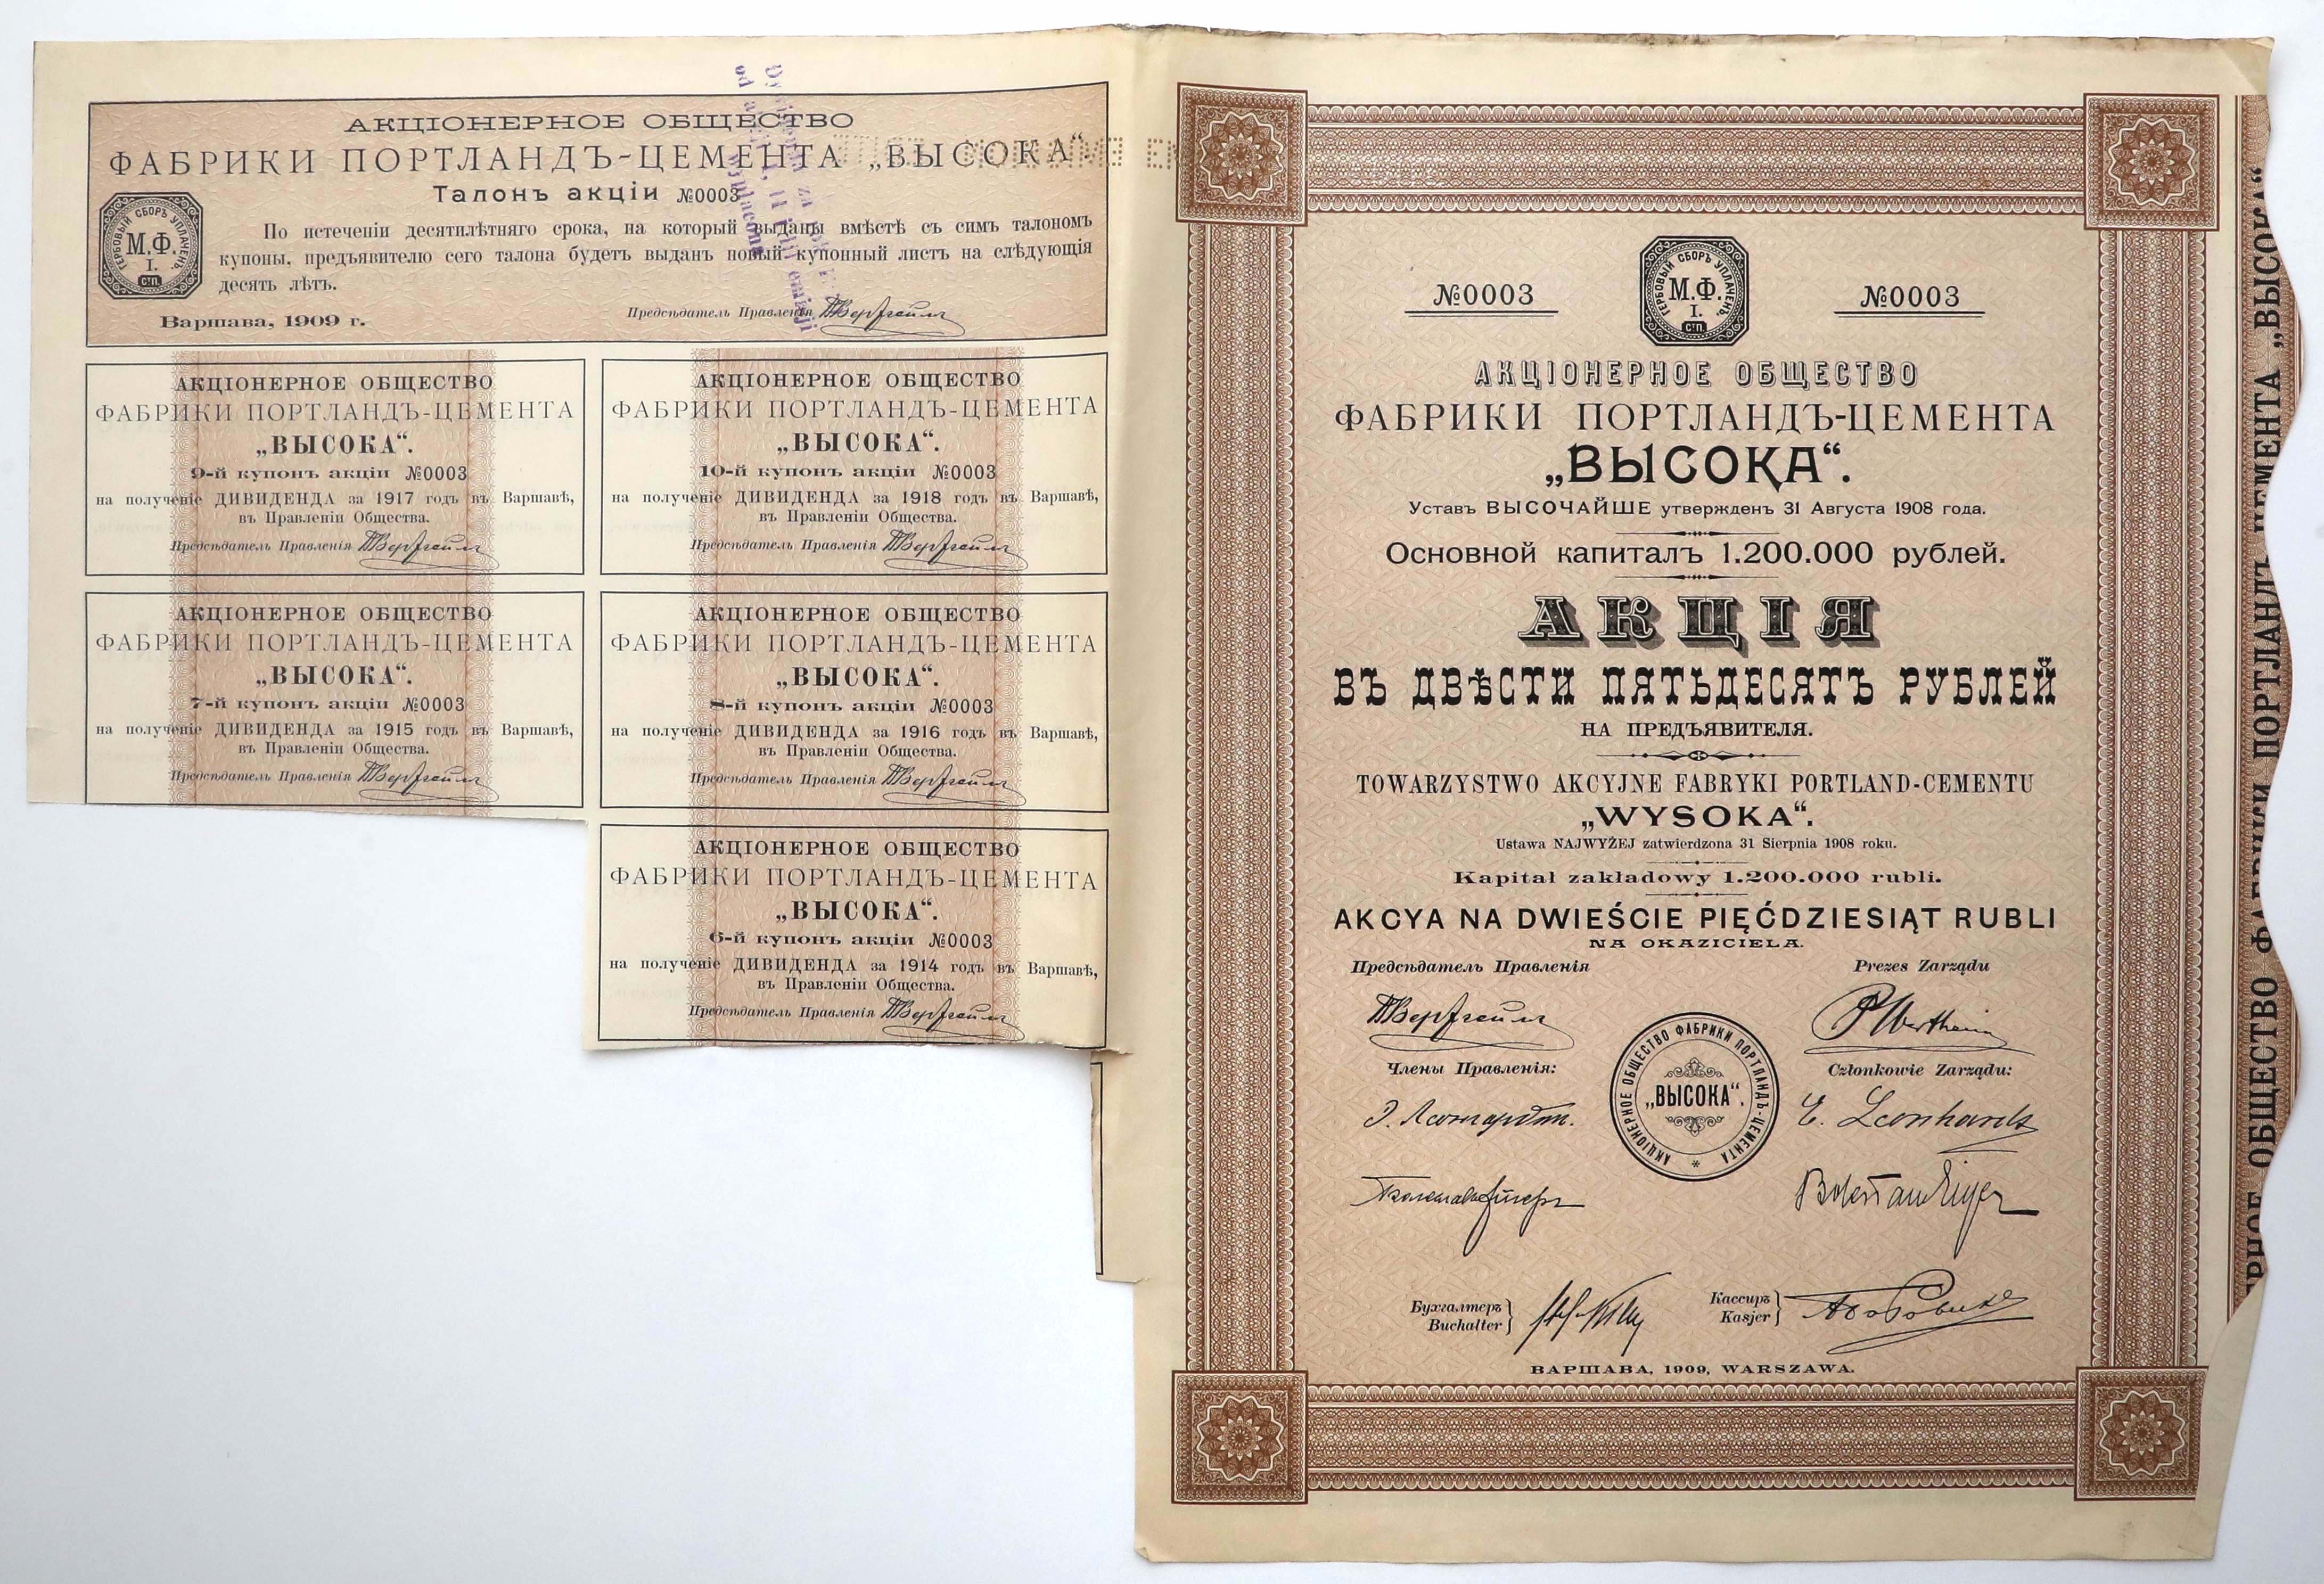 АКЦІОНЕРНОЕ ОБЩЕСТВО
ФАБРИКИ ПОРТЛАНДЪ-ЦЕМЕНТА „ВЫСОКА“.
Талонъ акціи №0003
По истеченіи десятилѣтняго срока, на который выданы вмѣстѣ съ симъ талономъ
купоны, предъявителю сего талона будетъ выданъ новый купонный листъ на слѣдующія
десять лѣтъ.
ГЕРБОВЫЙ СБОРЪ УПЛАЧЕНЪ.
М.Ф.
I.
С.П.
Варшава, 1909 г.
Предсѣдатель Правленія
АКЦІОНЕРНОЕ ОБЩЕСТВО
ФАБРИКИ ПОРТЛАНДЪ-ЦЕМЕНТА
„ВЫСОКА“.
9-й купонъ акціи №0003
на полученіе ДИВИДЕНДА за 1917 годъ въ Варшавѣ,
въ Правленіи Общества.
Предсѣдатель Правленія
АКЦІОНЕРНОЕ ОБЩЕСТВО
ФАБРИКИ ПОРТЛАНДЪ-ЦЕМЕНТА
„ВЫСОКА“.
10-й купонъ акціи №0003
на полученіе ДИВИДЕНДА за 1918 годъ въ Варшавѣ,
въ Правленіи Общества.
Предсѣдатель Правленія
АКЦІОНЕРНОЕ ОБЩЕСТВО
ФАБРИКИ ПОРТЛАНДЪ-ЦЕМЕНТА
„ВЫСОКА“.
7-й купонъ акціи №0003
на полученіе ДИВИДЕНДА за 1915 годъ въ Варшавѣ,
въ Правленіи Общества.
Предсѣдатель Правленія
АКЦІОНЕРНОЕ ОБЩЕСТВО
ФАБРИКИ ПОРТЛАНДЪ-ЦЕМЕНТА
„ВЫСОКА“.
8-й купонъ акціи №0003
на полученіе ДИВИДЕНДА за 1916 годъ въ Варшавѣ,
въ Правленіи Общества.
Предсѣдатель Правленія
АКЦІОНЕРНОЕ ОБЩЕСТВО
ФАБРИКИ ПОРТЛАНДЪ-ЦЕМЕНТА
„ВЫСОКА“.
6-й купонъ акціи №0003
на полученіе ДИВИДЕНДА за 1914 годъ въ Варшавѣ,
въ Правленіи Общества.
Предсѣдатель Правленія
№0003
ГЕРБОВЫЙ СБОРЪ УПЛАЧЕНЪ.
М.Ф.
I.
С.П.
№0003
АКЦІОНЕРНОЕ ОБЩЕСТВО
ФАБРИКИ ПОРТЛАНДЪ-ЦЕМЕНТА
„ВЫСОКА“.
Уставъ ВЫСОЧАЙШЕ утвержденъ 31 Августа 1908 года.
Основной капиталъ 1.200.000 рублей.
АКЦІЯ
ВЪ ДВѢСТИ ПЯТЬДЕСЯТЪ РУБЛЕЙ
НА ПРЕДЪЯВИТЕЛЯ.
TOWARZYSTWO AKCYJNE FABRYKI PORTLAND-CEMENTU
„WYSOKA“.
Ustawa NAJWYŻEJ zatwierdzona 31 Sierpnia 1908 roku.
Kapitał zakładowy 1.200.000 rubli.
AKCYA NA DWIEŚCIE PIĘĆDZIESIĄT RUBLI
NA OKAZICIELA.
Предсѣдатель Правленія
Prezes Zarządu
P Wertheim
Члены Правленія:
Członkowie Zarządu:
АКЦІОНЕРНОЕ ОБЩЕСТВО ФАБРИКИ ПОРТЛАНДЪ-ЦЕМЕНТА
„ВЫСОКА“.
E. Leonhardt
Bolesław Eiger
Бухгалтеръ
Buchalter
Кассиръ
Kasjer
ВАРШАВА, 1909, WARSZAWA.
РНОЕ ОБЩЕСТВО ФАБРИКИ ПОРТЛАНДЪ-ЦЕМЕНТА „ВЫСОКА“